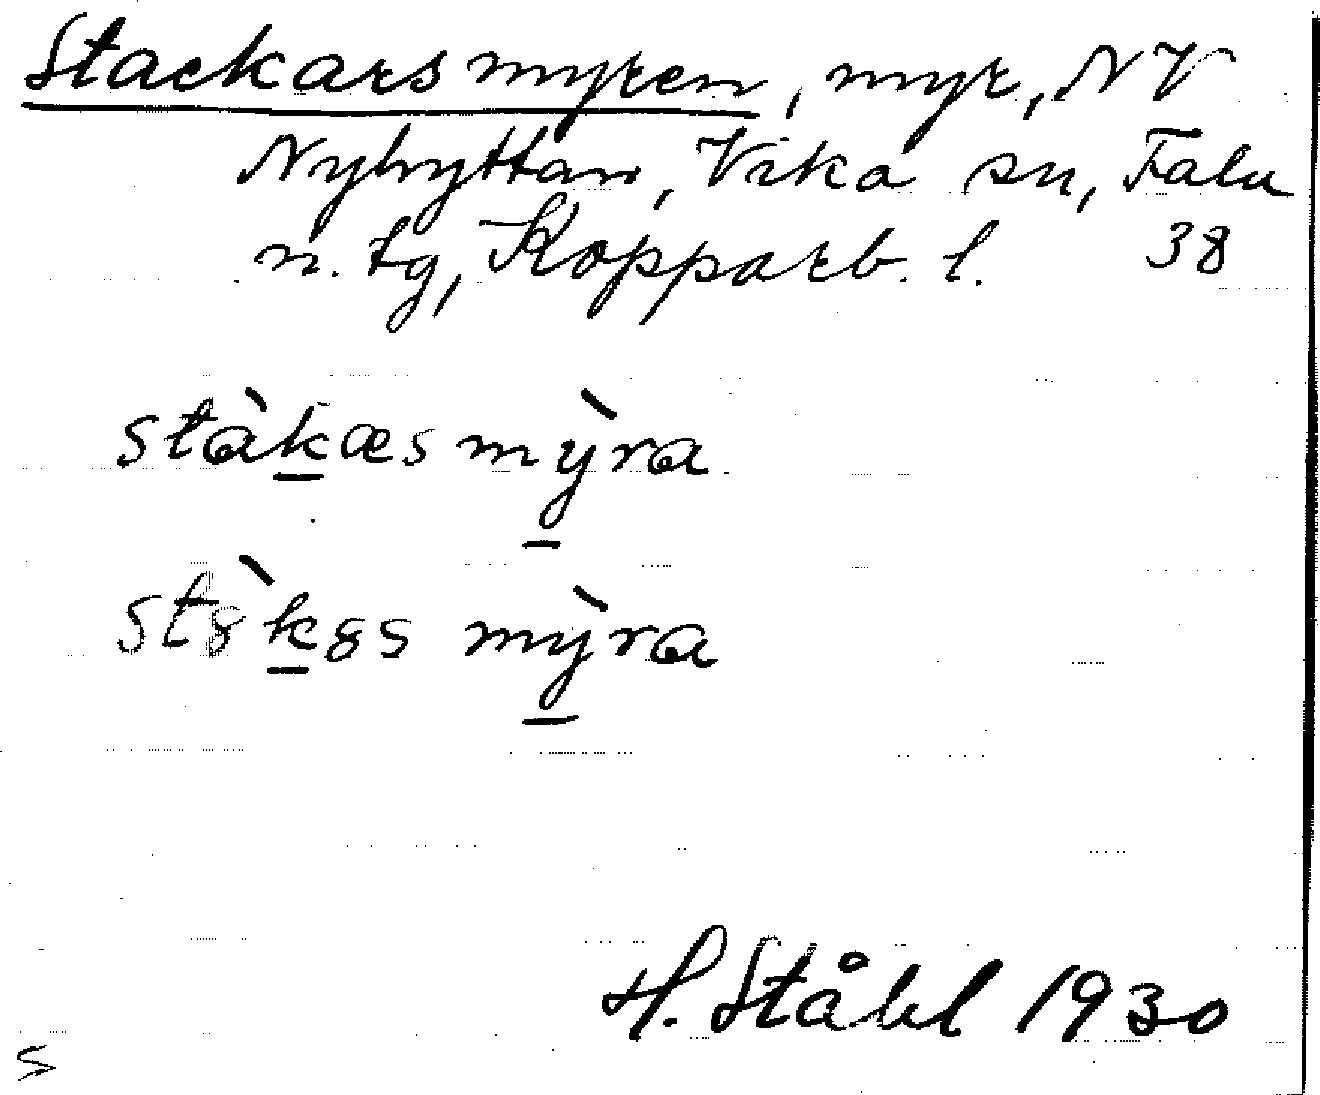 Stackarsmyren, myr, NV
Nyhyttan, Vika sn, Falu
n. tg, Kopparb. l. 38
stàkæs mỳra
st8̀k8s mỳra
H. Ståhl 1930
S